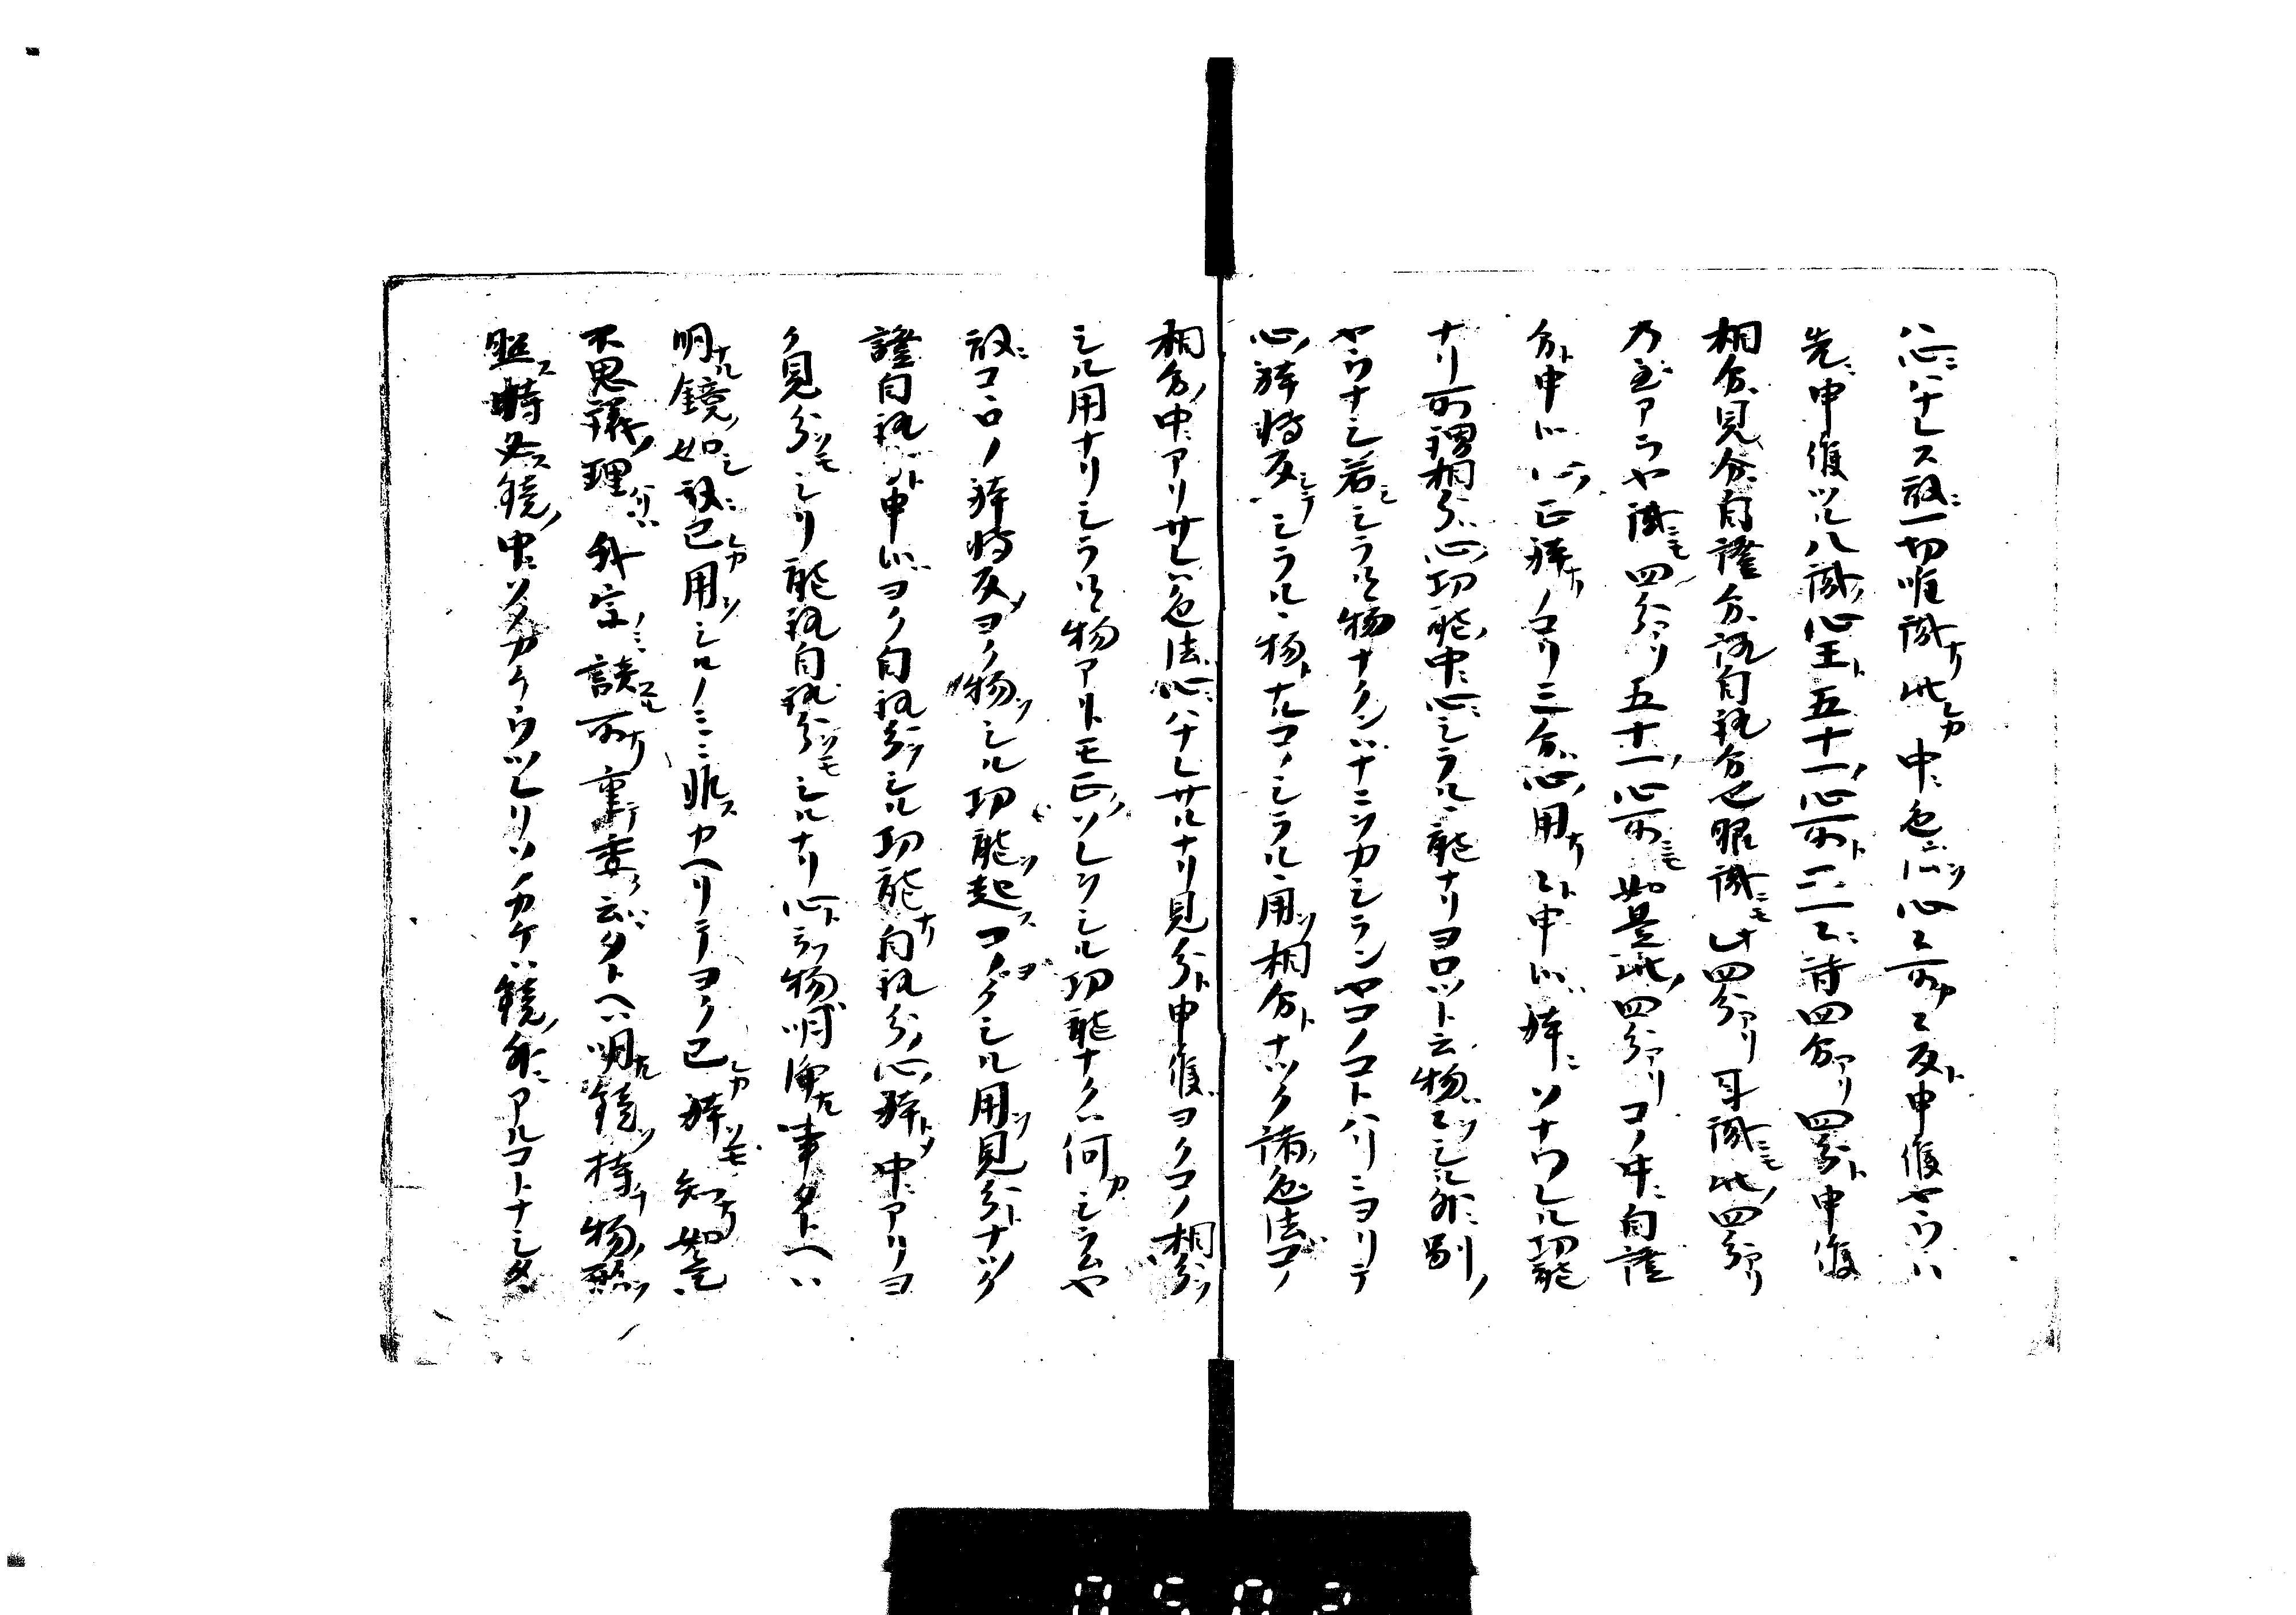 心ニハナレス故ニ一切唯識ナリ此レカ中ニ色ニハツ心之所ヤ之反ト申候ヤウハ
先ニ申候ツル八識ノ心王ト五十一ノ心所ト一二一之ニ皆四分アリ四分ト申候
相分見分自證分證自證分也眼識ニモ此四分アリ耳識ニモ此ノ四分アリ
乃至アラヤ識ニモ四分アリ五十一ノ心所ニモ如是此ノ四分アリコノ中ニ自證
分ト申ハ心ノ正躰ナリノコリ三分ハ心ノ用ナリ之ト申ハ躰ニソナワレル功能
ナリ所謂相分ハ心ノ功能ノ中ニ心ニシラルヽ能ナリヨロツト云物ハ之ヲシル外ニ別ノ
ヤウナシ若シシラルヽ物ナクンハナニヲカシランヤコノコトハリニヨリテ
心ノ躰将反シテシラルヽ物トナルコノシラルヽ用ヲ相分トナツク諸ノ色法コノ
相分ノ中ニアリサレハ色法ハ心ニハナレサルナリ見分ト申候ハヨクコノ相分ヲ
シル用ナリシラルヽ物アリトモ正ノソレヲシル功能ナクハ何カシラムヤ
故ニコヽロノ躰将反メヨクノ物ヲシル功能ヲ起スコノヨクシル用ヲ見分トナツク
證自證分ト申ハヨク自證分ヲシル功能ナリ自證分ハ心ノ躰トメ中ニアリヨ
ク見分ヲモシリ能證自證分ヲモシルナリ心ト云物ノ明浄ナル事タトヘハ
明ナル鏡ノ如シ故ニ己レカ用ヲシルノミニ非スカヘリテヨク己レカ躰ヲモ知ナリ如是
不思議ノ理ハ外宗ノミニ談スル所ナリ重テ委ク云ハタトヘハ明ナル鏡ヲ持テ物ノ形ヲ
照ス時必ス鏡ノ中ニソノカケウツレリソノカケハ鏡ノ外ニアルコトナシタヽ